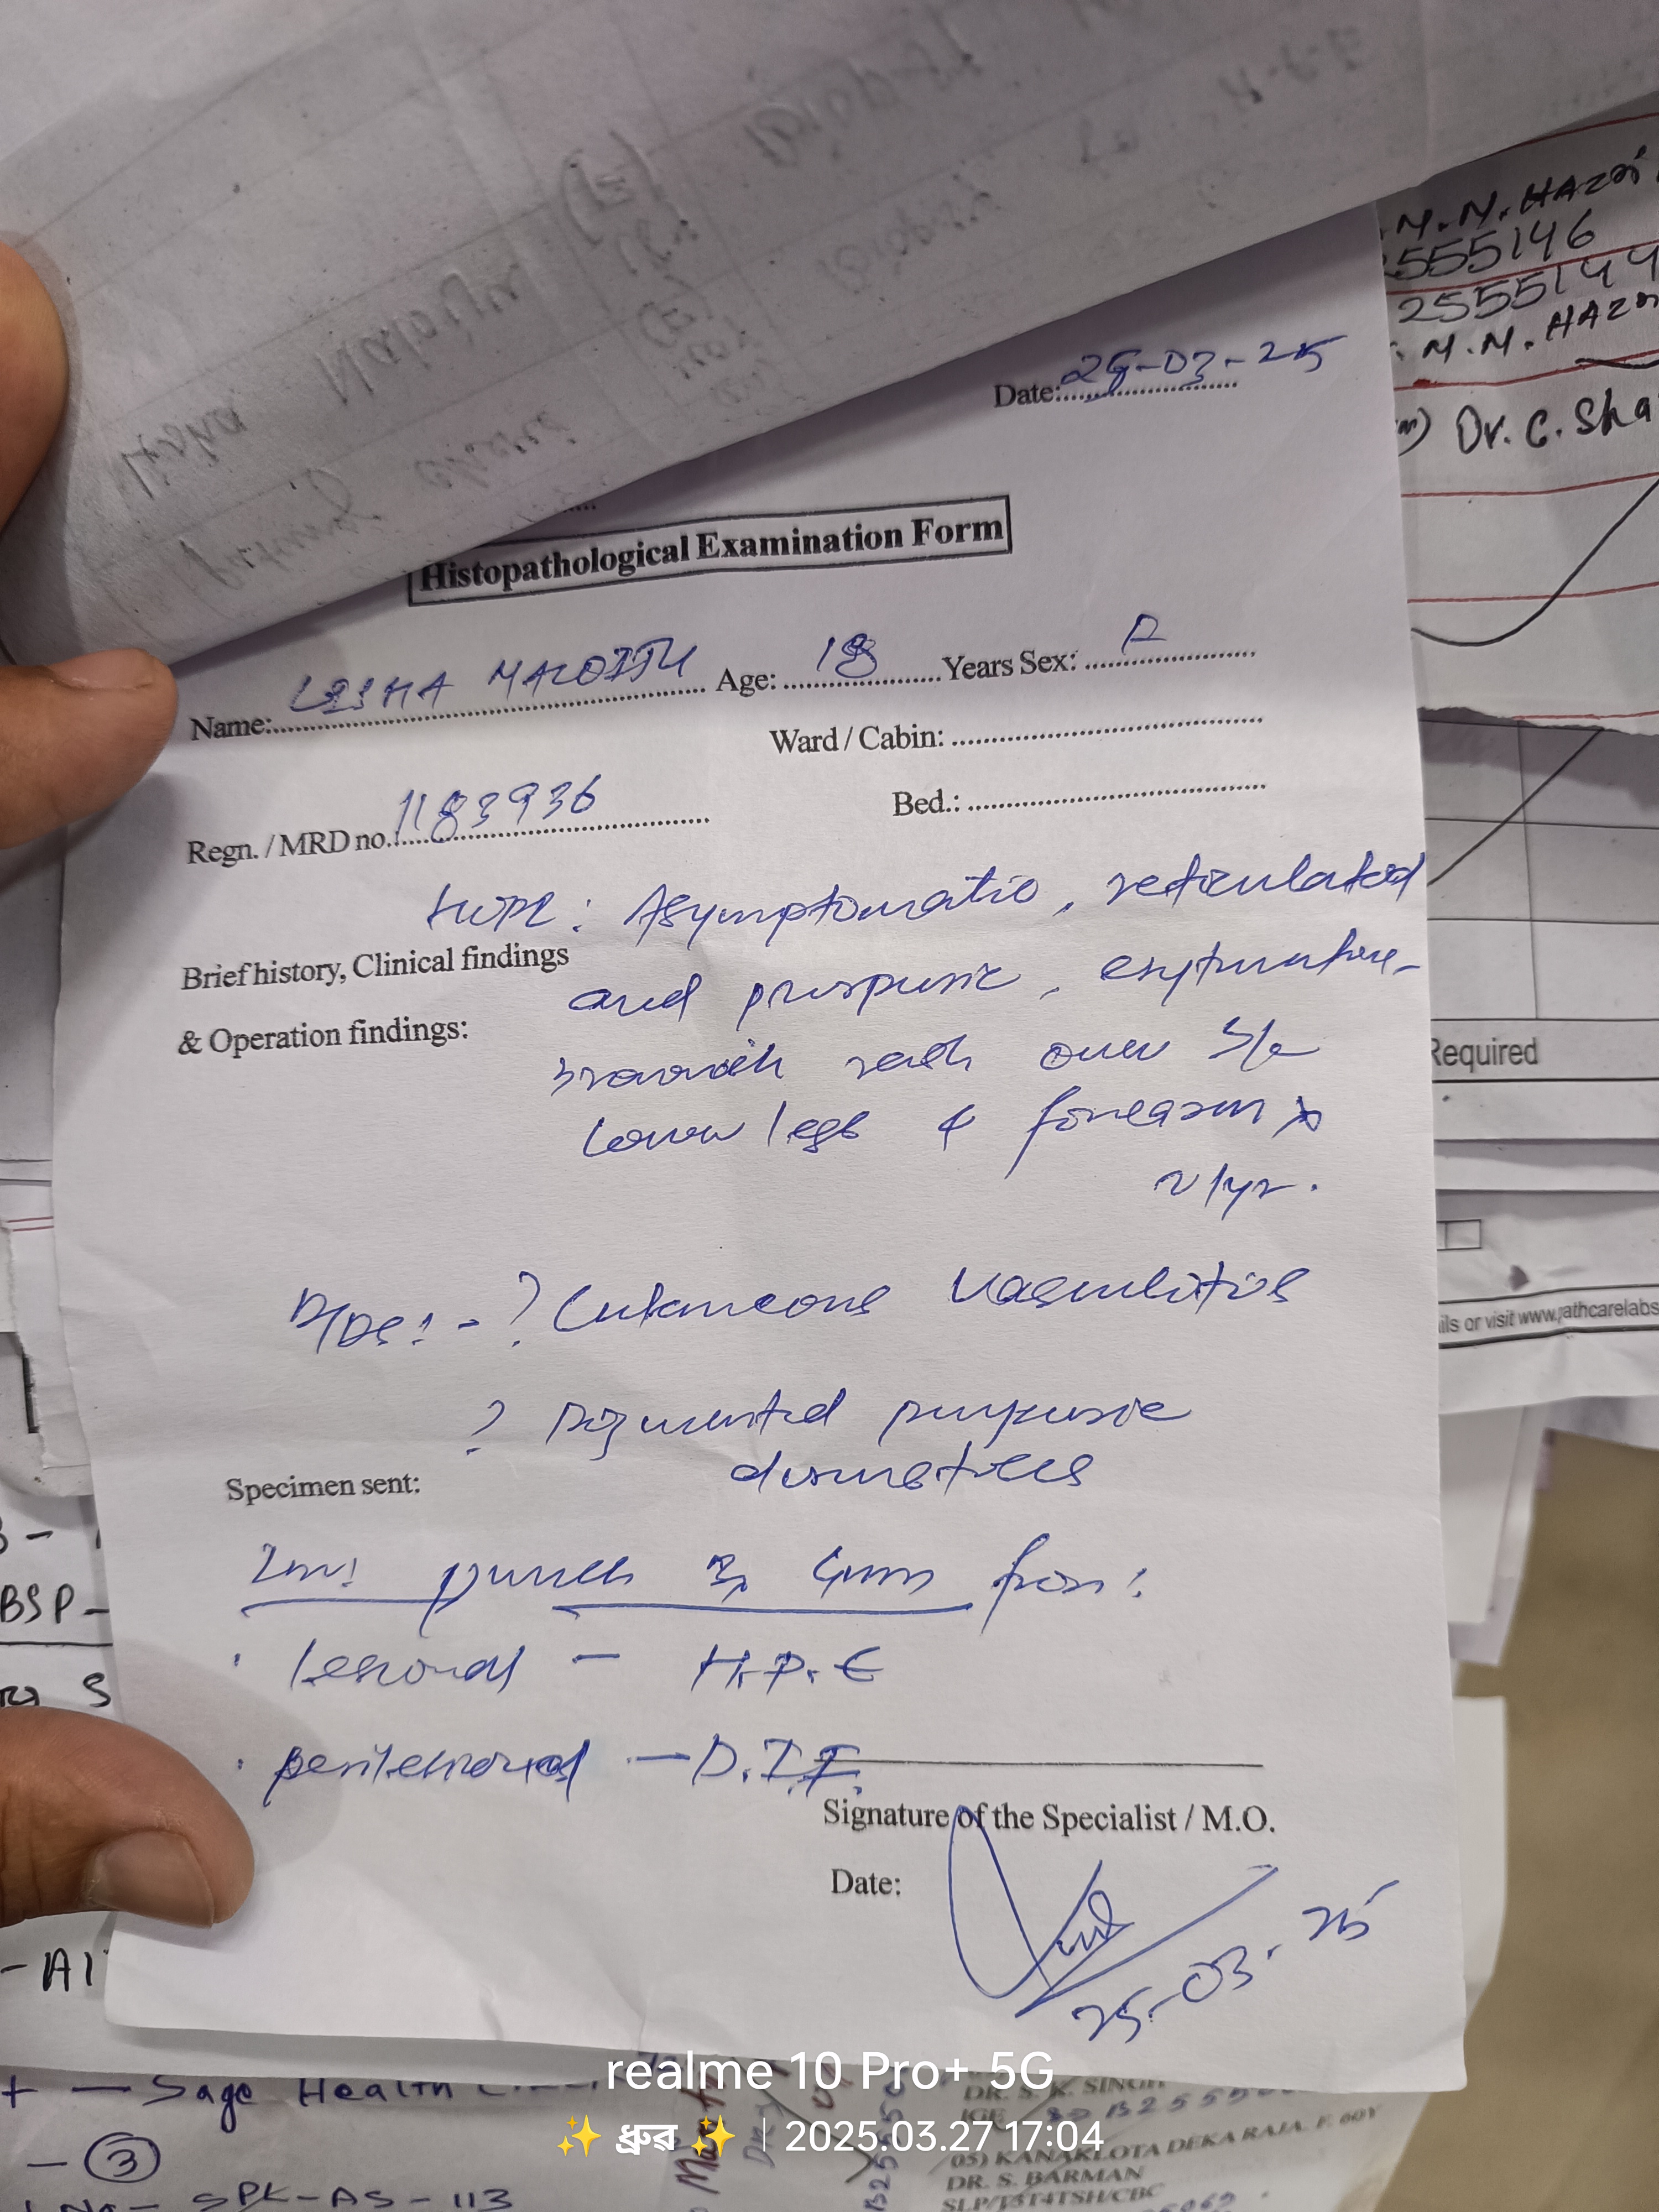 M.N. HAZ
555146
255514
M.N. HAZ
Dr. C. Sha
Date: 25-03-25
Histopathological Examination Form
Name: Age: 18 Years Sex: F
Ward / Cabin:
Regn. / MRD no. 1183936
Bed.:
HOPI: Asymptomatic, reticulated
Brief history, Clinical findings
and purpuric, erythmato-
& Operation findings:
brownish rash over B/L
lower legs & forearm x
1yr.
D/Ds: - ? Cutaneous Vasculitis
? Pigmented purpuric
dermatoses
Specimen sent:
punch 4mm from:
lesional - H.P.E
perilesional - D.I.F.
Signature of the Specialist / M.O.
Date:
25-03-25
Required
ils or visit www.pathcarelabs
BSP-
- AI
+ - Sage Health
- 3
SPK-AS-113
DR. S. K. SINGH
05) KANAKLOTA DEKA RAJA. F. 60Y
DR. S. BARMAN
SLP/T3T4TSH/CBC
realme 10 Pro+ 5G
✨ ধ্রুৱ ✨ | 2025.03.27 17:04